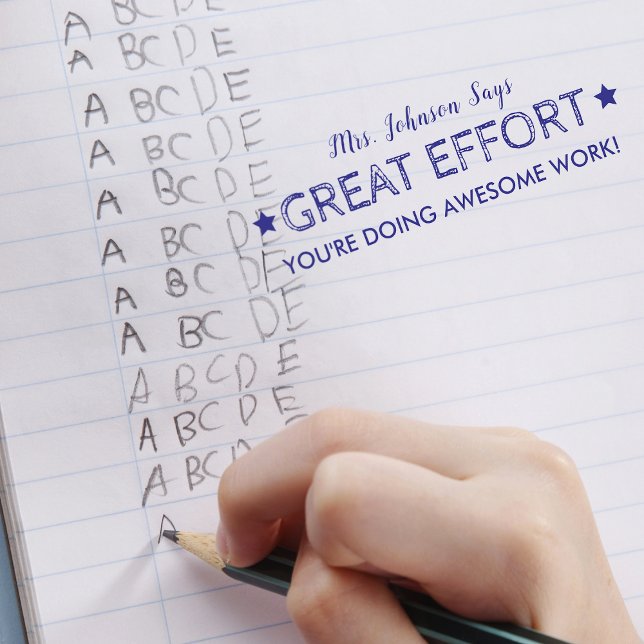 A BC D E
A BC D E
A BC D E
A BC D E
A BC D E
A BC D E
A BC DE
A BC DE
A BCD E
A BC D E
A BC D
A
Mrs. Johnson Says
GREAT EFFORT
YOU'RE DOING AWESOME WORK!